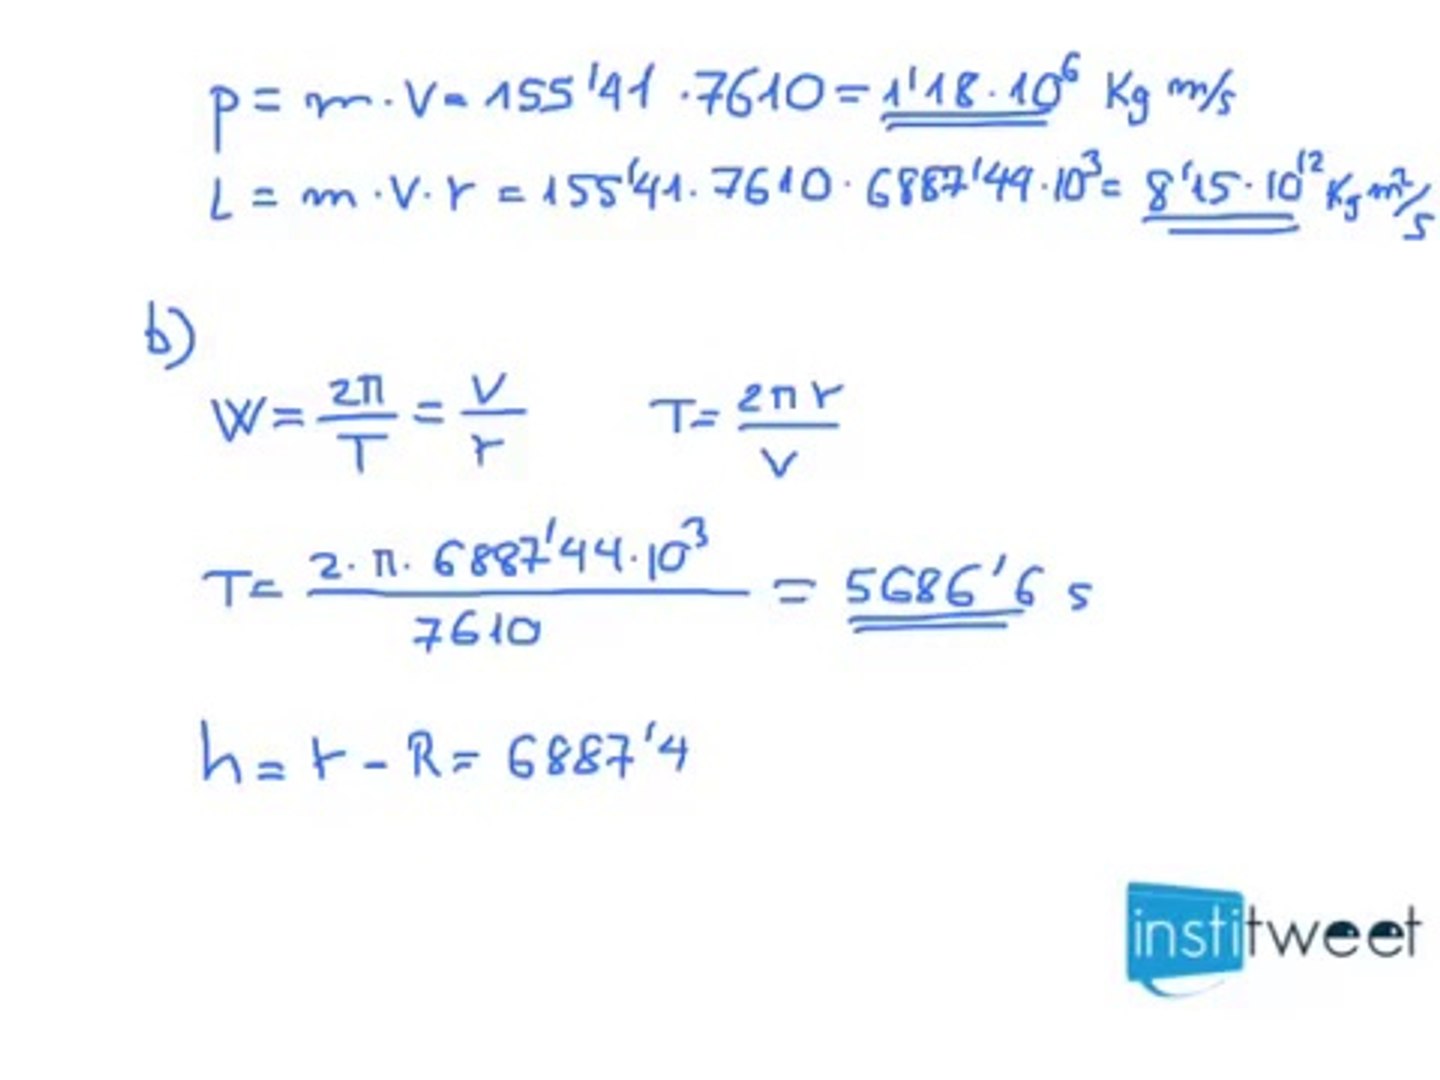 p = m · v = 155'41 · 7610 = 1'18 · 10⁶ Kg m/s
L = m · v · r = 155'41 · 7610 · 6887'44 · 10³ = 8'15 · 10¹² Kg m²/s
b)
W = 2π/T = v/r T = 2πr/v
T = 2 · π · 6887'44 · 10³ / 7610 = 5686'6 s
h = r - R = 6887'4
institweet